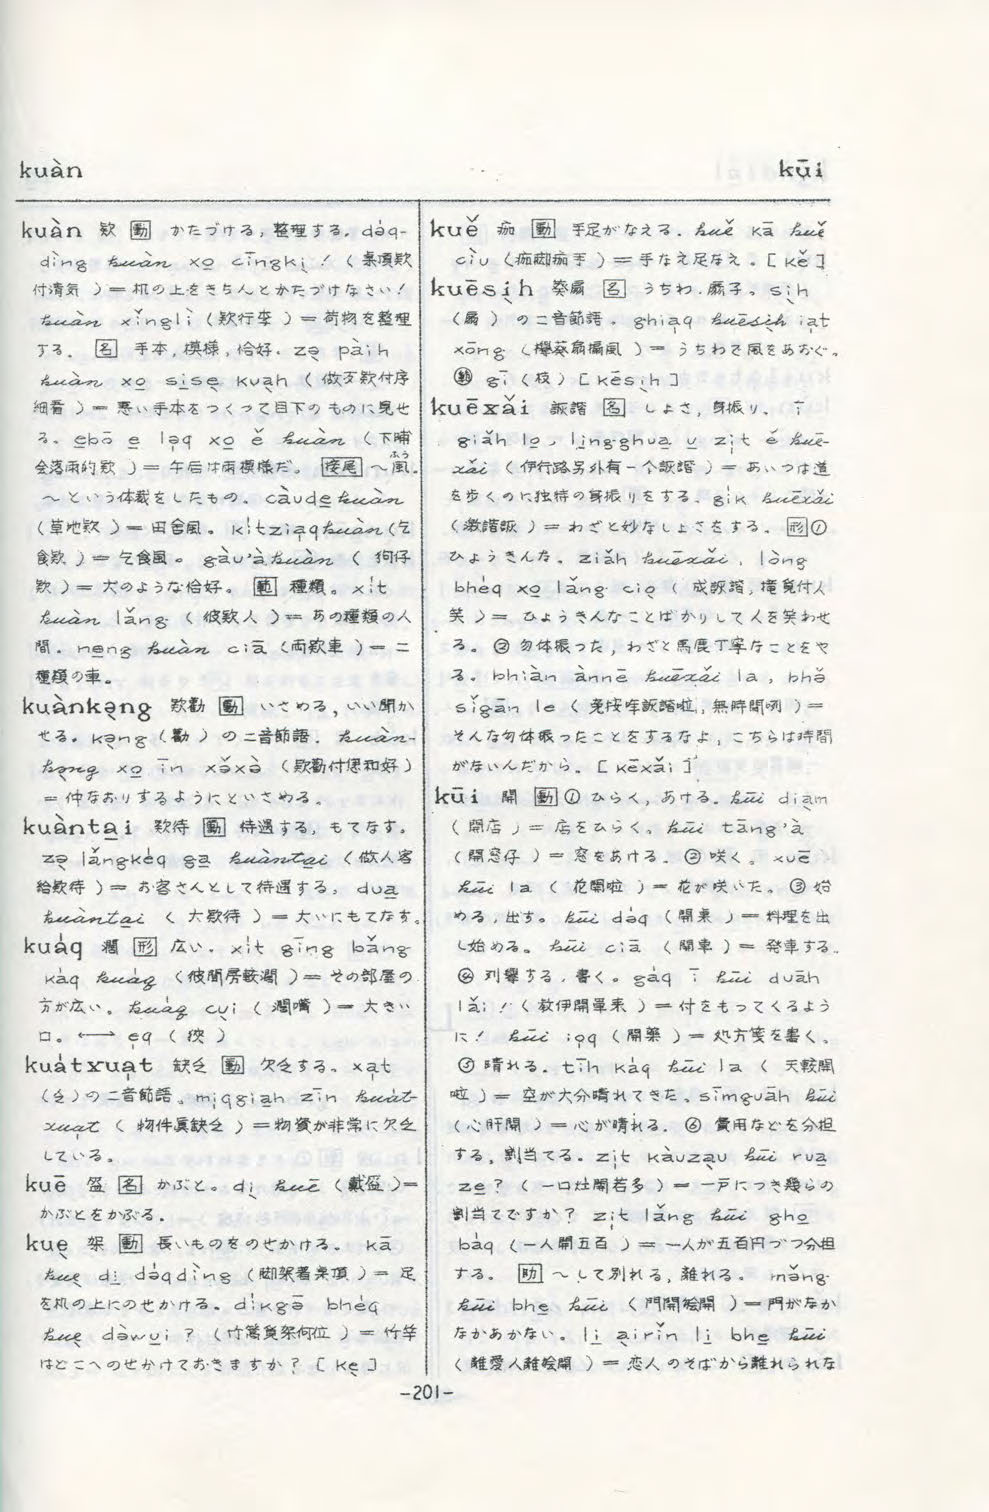 kuàn
kūi
kuàn 欵 動 かたづける,整理する. də́q-
dìng kuàn xo̲ cīngkị！（桌頂欵
付清気）＝机の上をきちんとかたづけなさい！
kuàn xǐnglì（欵行李）＝荷物を整理
する. 名 手本,模様,恰好. zə̣ pàih
kuàn xo̲ si̲se̲ kuạh（做歹欵付序
細看）＝悪い手本をつくって目下のものに見せ
る。e̲bō e̲ lə̣q xo̲ ě kuàn（下晡
会落雨的欵）＝午后は雨模様だ。接尾 〜風。
〜という体裁をしたもの。càudẹkuàn
（草地欵）＝田舎風。kı̍tziạqkuàn（乞
食欵）＝乞食風。gàu'àkuàn（狗仔
欵）＝犬のような恰好。範 種類。xı̍t
kuàn lǎng（彼欵人）＝あの種類の人
間. nəng kuàn ciā（両欵車）＝二
種類の車。
kuànkə̣ng 欵勸 動 いさめる,いい聞か
せる。kə̣ng（勸）の二音節語. kuàn-
kə̣ng xo̲ īn xə̌xə̀（欵勸付恁和好）
＝仲なおりするようにといさめる。
kuànta̲i 欵待 動 待遇する,もてなす。
zə̣ lǎngkéq ga̲ kuànta̲i（做人客
給欵待）＝お客さんとして待遇する, dua̲
kuànta̲i（大欵待）＝大いにもてなす。
kuáq 濶 形 広い. xı̍t gīng bǎng
káq kuáq（彼間房較濶）＝その部屋の
方が広い。kuáq cuị（濶嘴）＝大きい
口。←→ ẹq（狹）
kuátxuạt 缺乏 動 欠乏する。xạt
（乏）の二音節語。mịqgia̲h zīn kuát-
xuạt（物件眞缺乏）＝物資が非常に欠乏
している。
kuē 盔 名 かぶと。dị kuē（戴盔）＝
かぶとをかぶる.
kuẹ 架 動 長いものをのせかける。kā
kuẹ di̲ də́qdìng（脚架着桌頂）＝足
を机の上にのせかける。dı̍kgə̄ bhéq
kuẹ də̀wu̲i？（竹篙覓架何位）＝竹竿
はどこへのせかけておきますか？［kẹ］
kuě 痂 動 手足がなえる. kuě kā kuě
cìu（痂脚痂手）＝手なえ足なえ。［kě］
kuēsịh 葵扇 名 うちわ.扇子。sịh
（扇）の二音節語. ghiạq kuēsịh iạt
xōng（攑葵扇搧風）＝うちわで風をあおぐ。
範 gī（枝）［kēsịh］
kuēxǎi 詼諧 名 しょさ,身振り. ī
giǎh lo̲, lı̲ng-ghua̲ u̲ zı̣t ě kuē-
xǎi（伊行路另外有一个詼諧）＝あいつは道
を歩くのに独特の身振りをする. gı̍k kuēxǎi
（激詼諧）＝わざと妙なしょさをする。形 ①
ひょうきんな。ziǎh kuēxǎi, lòng
bhéq xo̲ lǎng ciọ（成詼諧, 攏覓付人
笑）＝ひょうきんなことばかりして人を笑わせ
る。② 勿体振った,わざと馬鹿丁寧なことをや
る。bhiàn ànnē kuēxǎi la, bhə̌
sǐgān le（免按哖詼諧啦, 無時間咧）＝
そんな勿体振ったことをするなよ,こちらは時間
がないんだから。［kēxǎi］
kūi 開 動 ① ひらく,あける. kūi diạm
（開店）＝店をひらく。kūi tāng'à
（開窓仔）＝窓をあける. ② 咲く。xuē
kūi la（花開啦）＝花が咲いた。③ 始
める,出す。kūi də́q（開桌）＝料理を出
し始める。kūi ciā（開車）＝発車する.
④ 列擧する.書く。gáq ī kūi duāh
lǎi！（教伊開單来）＝付をもってくるよう
に！ kūi iọq（開藥）＝処方箋を書く。
⑤ 晴れる. tīh káq kūi la（天較開
啦）＝空が大分晴れてきた。sīmguāh kūi
（心肝開）＝心が晴れる. ⑥ 費用などを分担
する,割当てる. zı̣t kàuzạu kūi rua̲
ze̲？（一口灶開若多）＝一戸につき幾らの
割当てですか？ zı̣t lǎng kūi gho̲
báq（一人開五百）＝一人が五百円づつ分担
する。 助 〜して別れる,離れる。mə̌ng
kūi bhe̲ kūi（門開獪開）＝門がなか
なかあかない。li̲ ạirǐn li̲ bhe̲ kūi
（離愛人離獪開）＝恋人のそばから離れられな
-201-